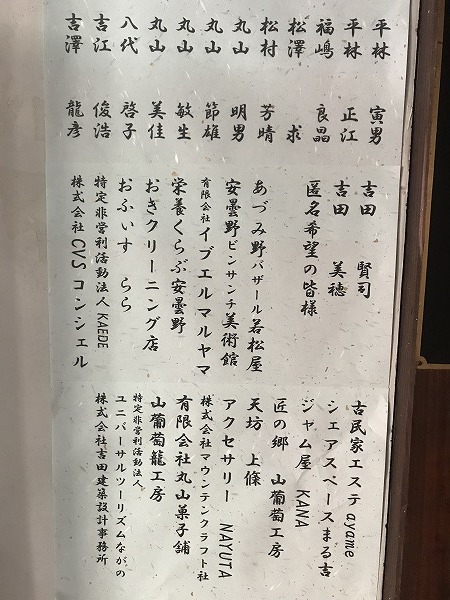 平林 寅男
平林 正江
福嶋 良晶
松澤 求
松村 芳晴
丸山 明男
丸山 節雄
丸山 敏生
丸山 美佳
八代 啓子
吉江 俊浩
吉澤 龍彦
吉田 賢司
吉田 美穂
匿名希望の皆様
あづみ野バザール若松屋
安曇野ビンサンチ美術館
有限会社イブエルマルヤマ
栄養くらぶ安曇野
おきクリーニング店
おふぃす らら
特定非営利活動法人 KAEDE
株式会社CVSコンシェル
古民家エステayame
シェアスペースまる吉
ジャム屋 KANA
匠の郷 山葡萄工房
天坊 上條
アクセサリー NAYUTA
株式会社マウンテンクラフト社
有限会社丸山菓子舗
山葡萄籠工房
特定非営利活動法人
ユニバーサルツーリズムながの
株式会社吉田建築設計事務所